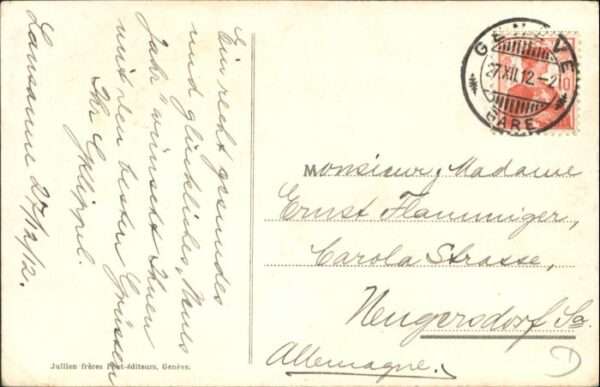 Ein recht gesundes
und glückliches "Neues
Jahr" wünscht Ihnen
mit den besten Grüssen
Ihr E. Klippel.
Lausanne 27/12/12.
GENÈVE
27.XII.12.-2
GARE
10
Monsieur, Madame
Ernst Flammiger,
Carola Strasse,
Neugersdorf Sa.
Allemagne.
D
Jullien frères Phot-éditeurs, Genève.